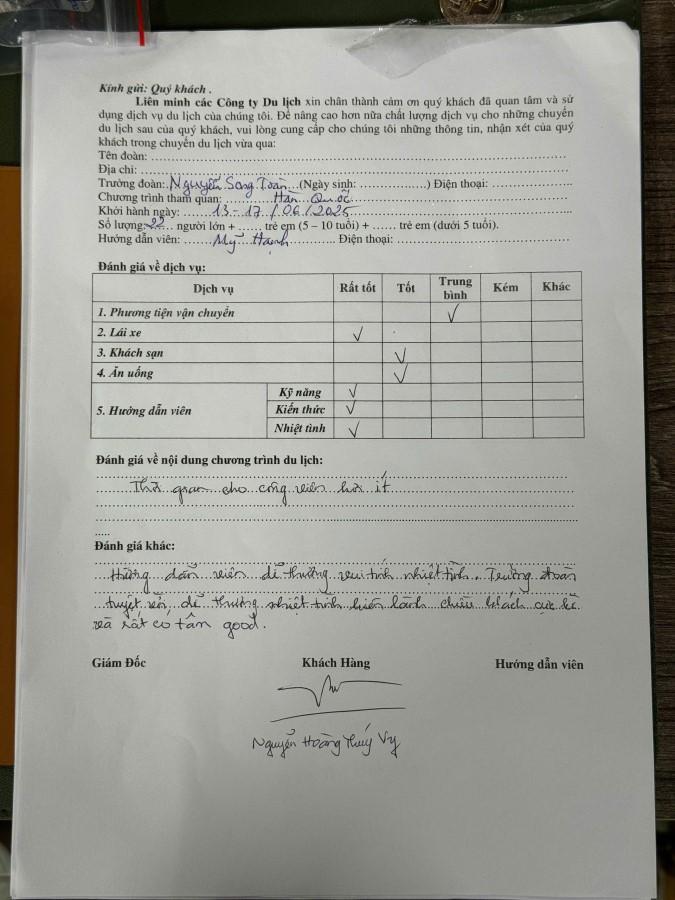 Kính gửi: Quý khách .
Liên minh các Công ty Du lịch xin chân thành cảm ơn quý khách đã quan tâm và sử
dụng dịch vụ du lịch của chúng tôi. Để nâng cao hơn nữa chất lượng dịch vụ cho những chuyến
du lịch sau của quý khách, vui lòng cung cấp cho chúng tôi những thông tin, nhận xét của quý
khách trong chuyến du lịch vừa qua:
Tên đoàn:
Địa chỉ:
Trưởng đoàn: Nguyễn Song Toàn (Ngày sinh: ) Điện thoại:
Chương trình tham quan: Hàn Quốc
Khởi hành ngày: 13-17/06/2025
Số lượng: 22 người lớn + ...... trẻ em (5 – 10 tuổi) + ...... trẻ em (dưới 5 tuổi).
Hướng dẫn viên: Mỹ Hạnh Điện thoại:
Đánh giá về dịch vụ:
Dịch vụ Rất tốt Tốt Trung bình Kém Khác
1. Phương tiện vận chuyển ✓
2. Lái xe ✓
3. Khách sạn ✓
4. Ăn uống ✓
5. Hướng dẫn viên
Kỹ năng ✓
Kiến thức ✓
Nhiệt tình ✓
Đánh giá về nội dung chương trình du lịch:
Thời gian cho công viên hơi ít
Đánh giá khác:
Hướng dẫn viên dễ thương vui tính nhiệt tình. Trưởng đoàn
tuyệt vời, dễ thương nhiệt tình hiền lành chiều khách cực kì
và rất có tâm good.
Giám Đốc Khách Hàng Hướng dẫn viên
Nguyễn Hoàng Thuý Vy